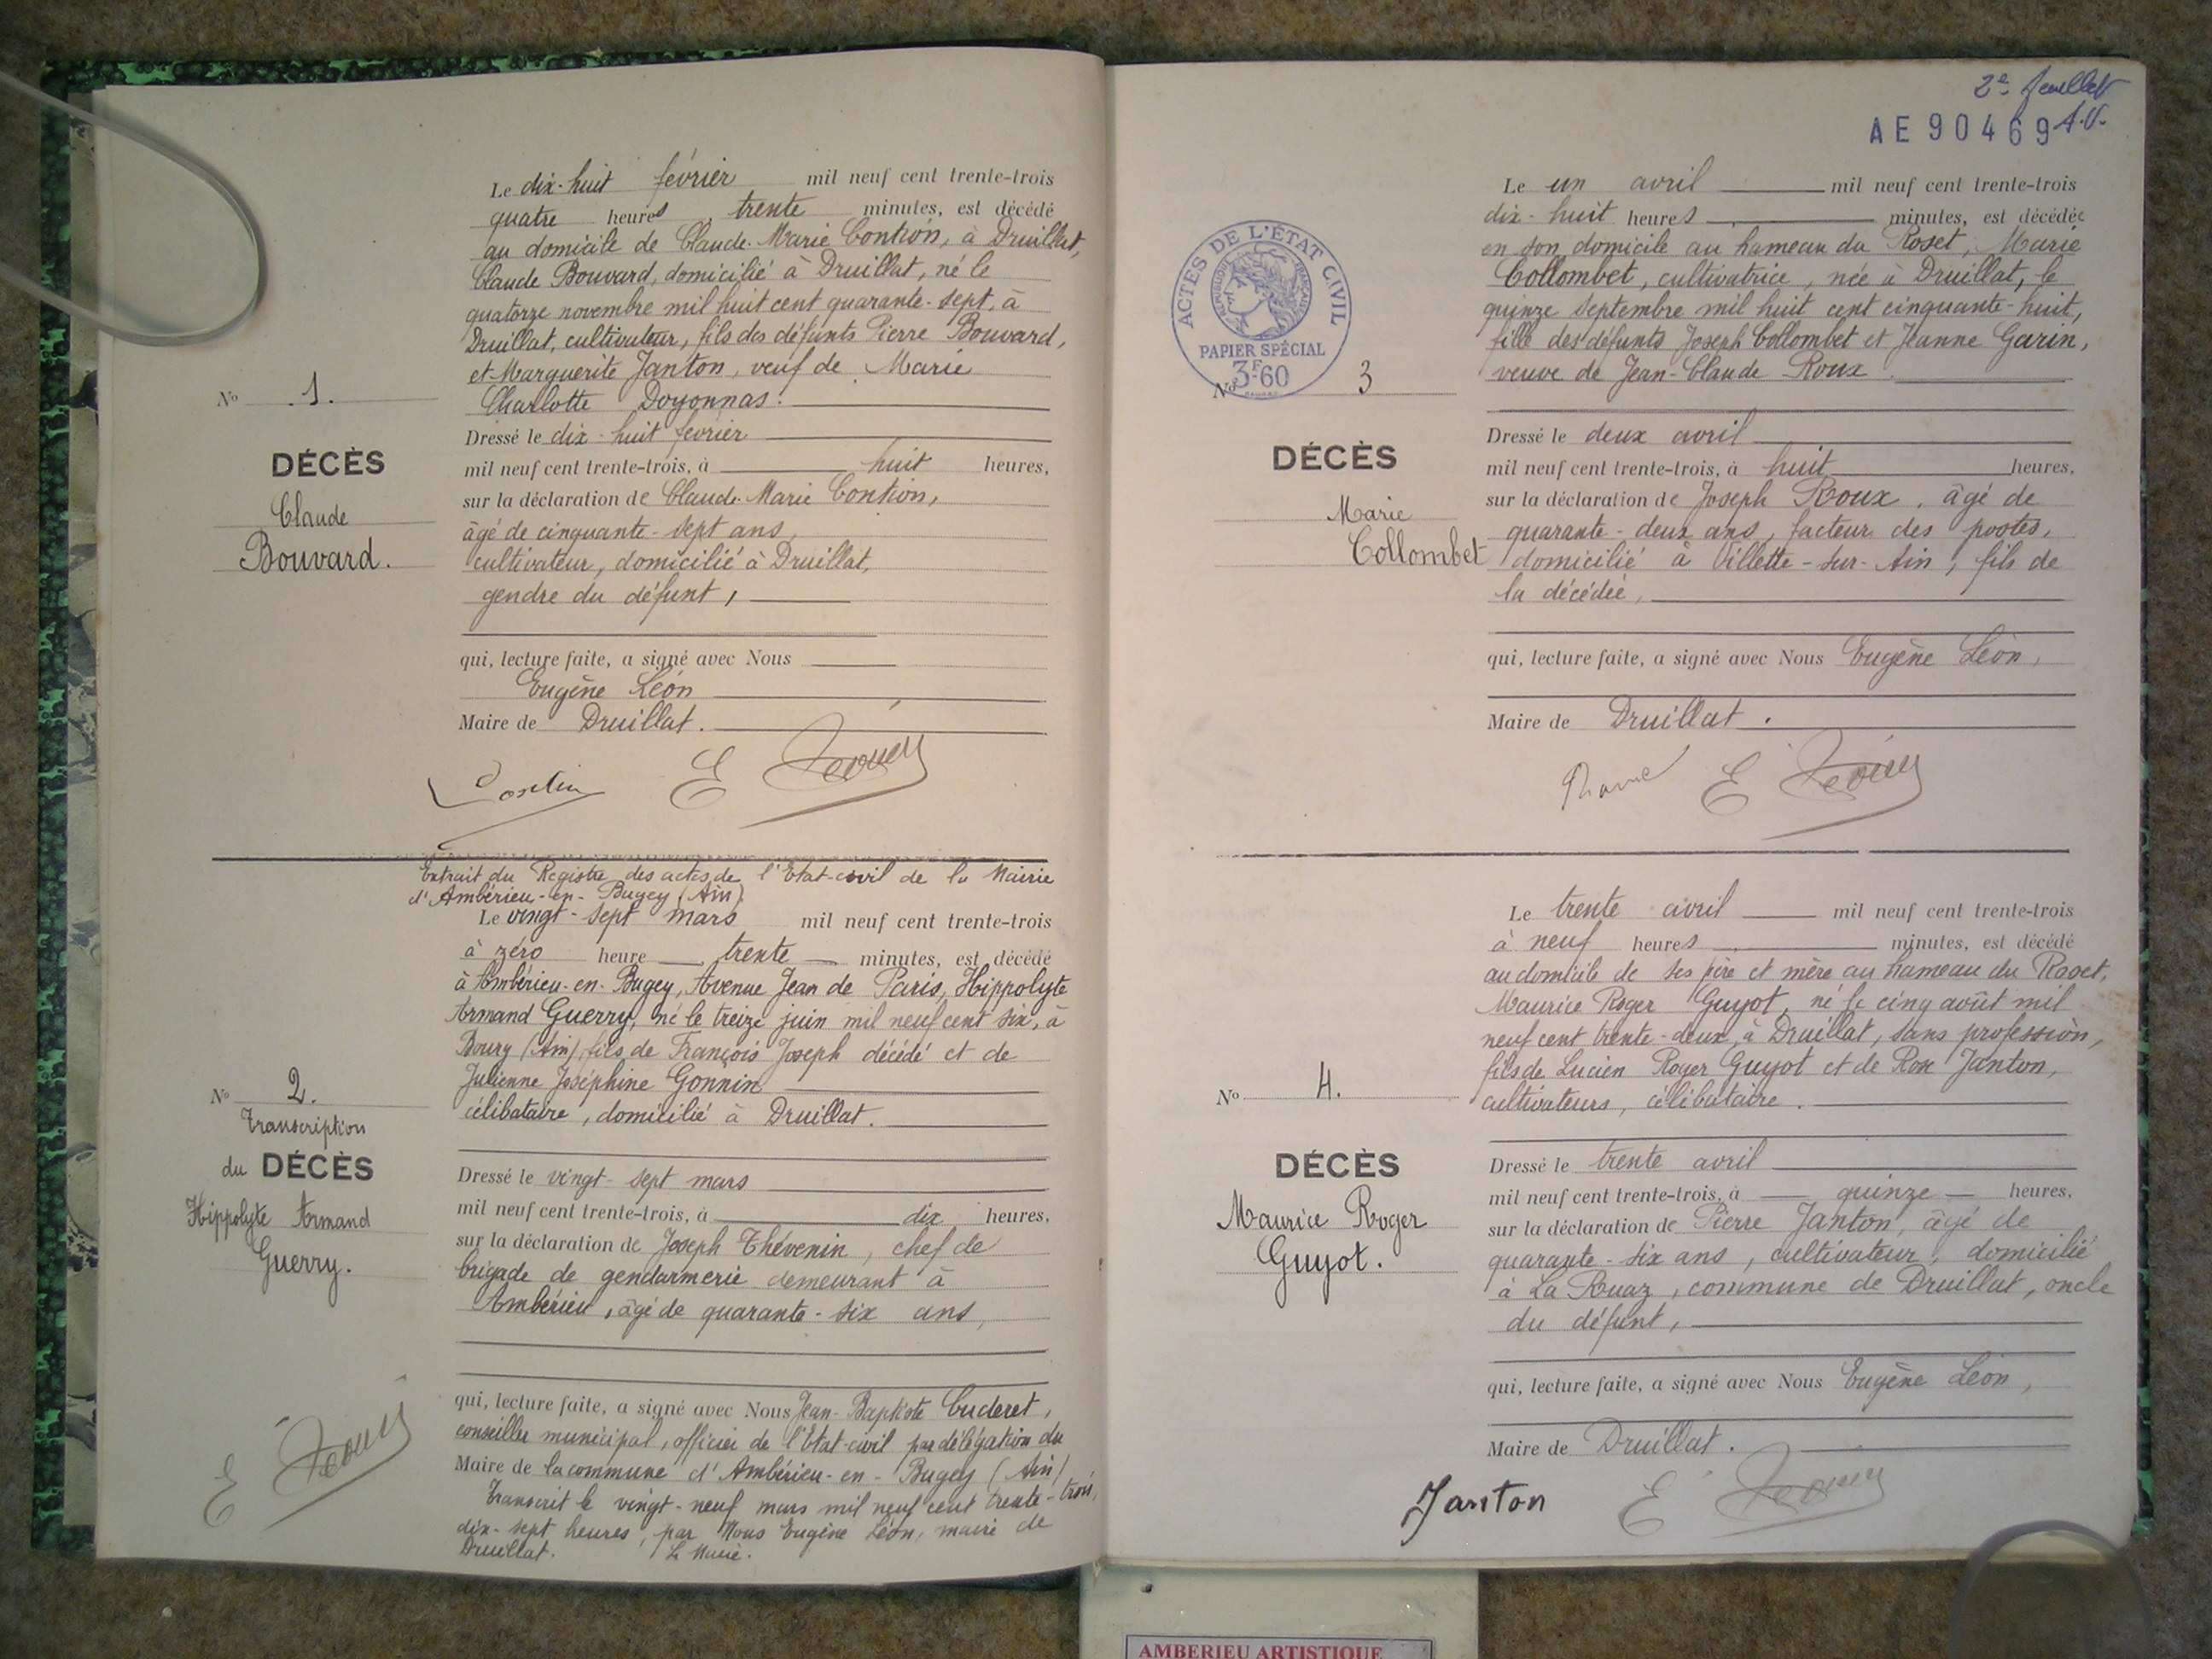 Le dix-huit février mil neuf cent trente-trois
quatre heures, trente minutes, est décédé
au domicile de Claude-Marie Contion, à Druillat,
Claude Bouvard, domicilié à Druillat, né le
quatorze novembre mil huit cent quarante-sept, à
Druillat, cultivateur, fils des défunts Pierre Bouvard,
et Marguerite Janton, veuf de Marie
Charlotte Doyonnas.
Nº 1.
DÉCÈS
Claude
Bouvard.
Dressé le dix-huit février
mil neuf cent trente-trois, à huit heures,
sur la déclaration de Claude-Marie Contion,
âgé de cinquante-sept ans,
cultivateur, domicilié à Druillat,
gendre du défunt,
qui, lecture faite, a signé avec Nous
Eugène Léon
Maire de Druillat.
Extrait du Registre des actes de l'Etat-civil de la Mairie
d'Ambérieu-en-Bugey (Ain)
Le vingt-sept mars mil neuf cent trente-trois
à zéro heure trente minutes, est décédé
à Ambérieu-en-Bugey, Avenue Jean de Paris, Hippolyte
Armand Guerry, né le treize juin mil neuf cent six, à
Bourg (Ain) fils de François Joseph décédé et de
Julienne Joséphine Gonnin
célibataire, domicilié à Druillat.
Nº 2.
Transcription
du DÉCÈS
Hippolyte Armand
Guerry.
Dressé le vingt-sept mars
mil neuf cent trente-trois, à dix heures,
sur la déclaration de Joseph Thévenin, chef de
brigade de gendarmerie demeurant à
Ambérieu, âgé de quarante-six ans,
qui, lecture faite, a signé avec Nous Jean-Baptiste Cuderet,
conseiller municipal, officier de l'Etat-civil par délégation du
Maire de la commune d'Ambérieu-en-Bugey (Ain)
Transcrit le vingt-neuf mars mil neuf cent trente-trois,
dix-sept heures, par Nous Eugène Léon, maire de
Druillat. Le Maire.
2e feuillet
AE90469 A.V.
ACTES DE L'ÉTAT CIVIL
RÉPUBLIQUE FRANÇAISE
PAPIER SPÉCIAL
3F60
Le un avril mil neuf cent trente-trois
dix-huit heures minutes, est décédée
en son domicile au hameau du Roset, Marie
Collombet, cultivatrice, née à Druillat, le
quinze septembre mil huit cent cinquante-huit,
fille des défunts Joseph Collombet et Jeanne Garin,
veuve de Jean-Claude Roux
Nº 3
DÉCÈS
Marie
Collombet
Dressé le deux avril
mil neuf cent trente-trois, à huit heures,
sur la déclaration de Joseph Roux, âgé de
quarante-deux ans, facteur des postes,
domicilié à Villette-sur-Ain, fils de
la décédée,
qui, lecture faite, a signé avec Nous Eugène Léon,
Maire de Druillat.
Le trente avril mil neuf cent trente-trois
à neuf heures minutes, est décédé
au domicile de ses père et mère au hameau du Roset,
Maurice Roger Guyot, né le cinq août mil
neuf cent trente-deux, à Druillat, sans profession,
fils de Lucien Roger Guyot et de Rose Janton,
cultivateurs, célibataire.
Nº 4.
DÉCÈS
Maurice Roger
Guyot.
Dressé le trente avril
mil neuf cent trente-trois, à quinze heures,
sur la déclaration de Pierre Janton, âgé de
quarante-six ans, cultivateur, domicilié
à La Ruaz, commune de Druillat, oncle
du défunt,
qui, lecture faite, a signé avec Nous Eugène Léon,
Maire de Druillat.
Janton
AMBERIEU ARTISTIQUE